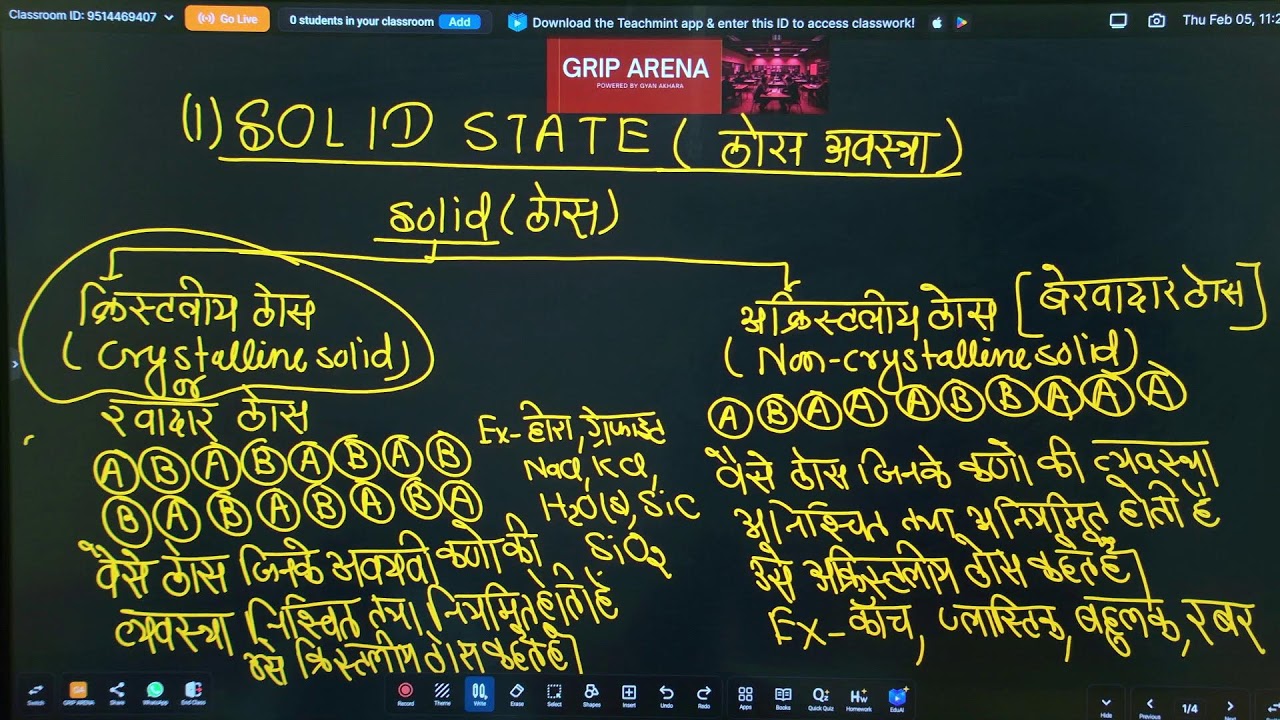 Classroom ID: 9514469407
Go Live
0 students in your classroom Add
Download the Teachmint app & enter this ID to access classwork!
Thu Feb 05, 11:2
GRIP ARENA
POWERED BY GYAN AKHARA
(1) SOLID STATE ( ठोस अवस्त्रा )
Solid (ठोस)
क्रिस्टलीय ठोस
( Crystalline solid)
or
रवादार ठोस
A B A B A B A B
B A B A B A B A
वैसे ठोस जिनके अवयवी कणो की
व्यवस्त्रा निश्चित तत्रा नियमित होती हैं
उसे क्रिस्तलीय ठोस कहते हैं|
Ex- हीरा, ग्रेफाइट
NaCl, KCl,
H2O(s), SiC
SiO2
अक्रिस्टलीय ठोस [बेरवादार ठोस]
( Non-crystalline solid)
A B A A A B B A A A
वैसे ठोस जिनके कणो की व्यवस्त्रा
अनिश्चित तथा अनियमित होती हैं
उसे अक्रिस्तलीय ठोस कहते हैं|
Ex- काँच, प्लास्टिक, बहुलक, रबर
Switch GRIP ARENA Share WhatsApp End Class
Record Theme Write Erase Select Shapes Insert Undo Redo
Apps Books Quick Quiz Homework EduAI
Hide Previous 1/4 Next